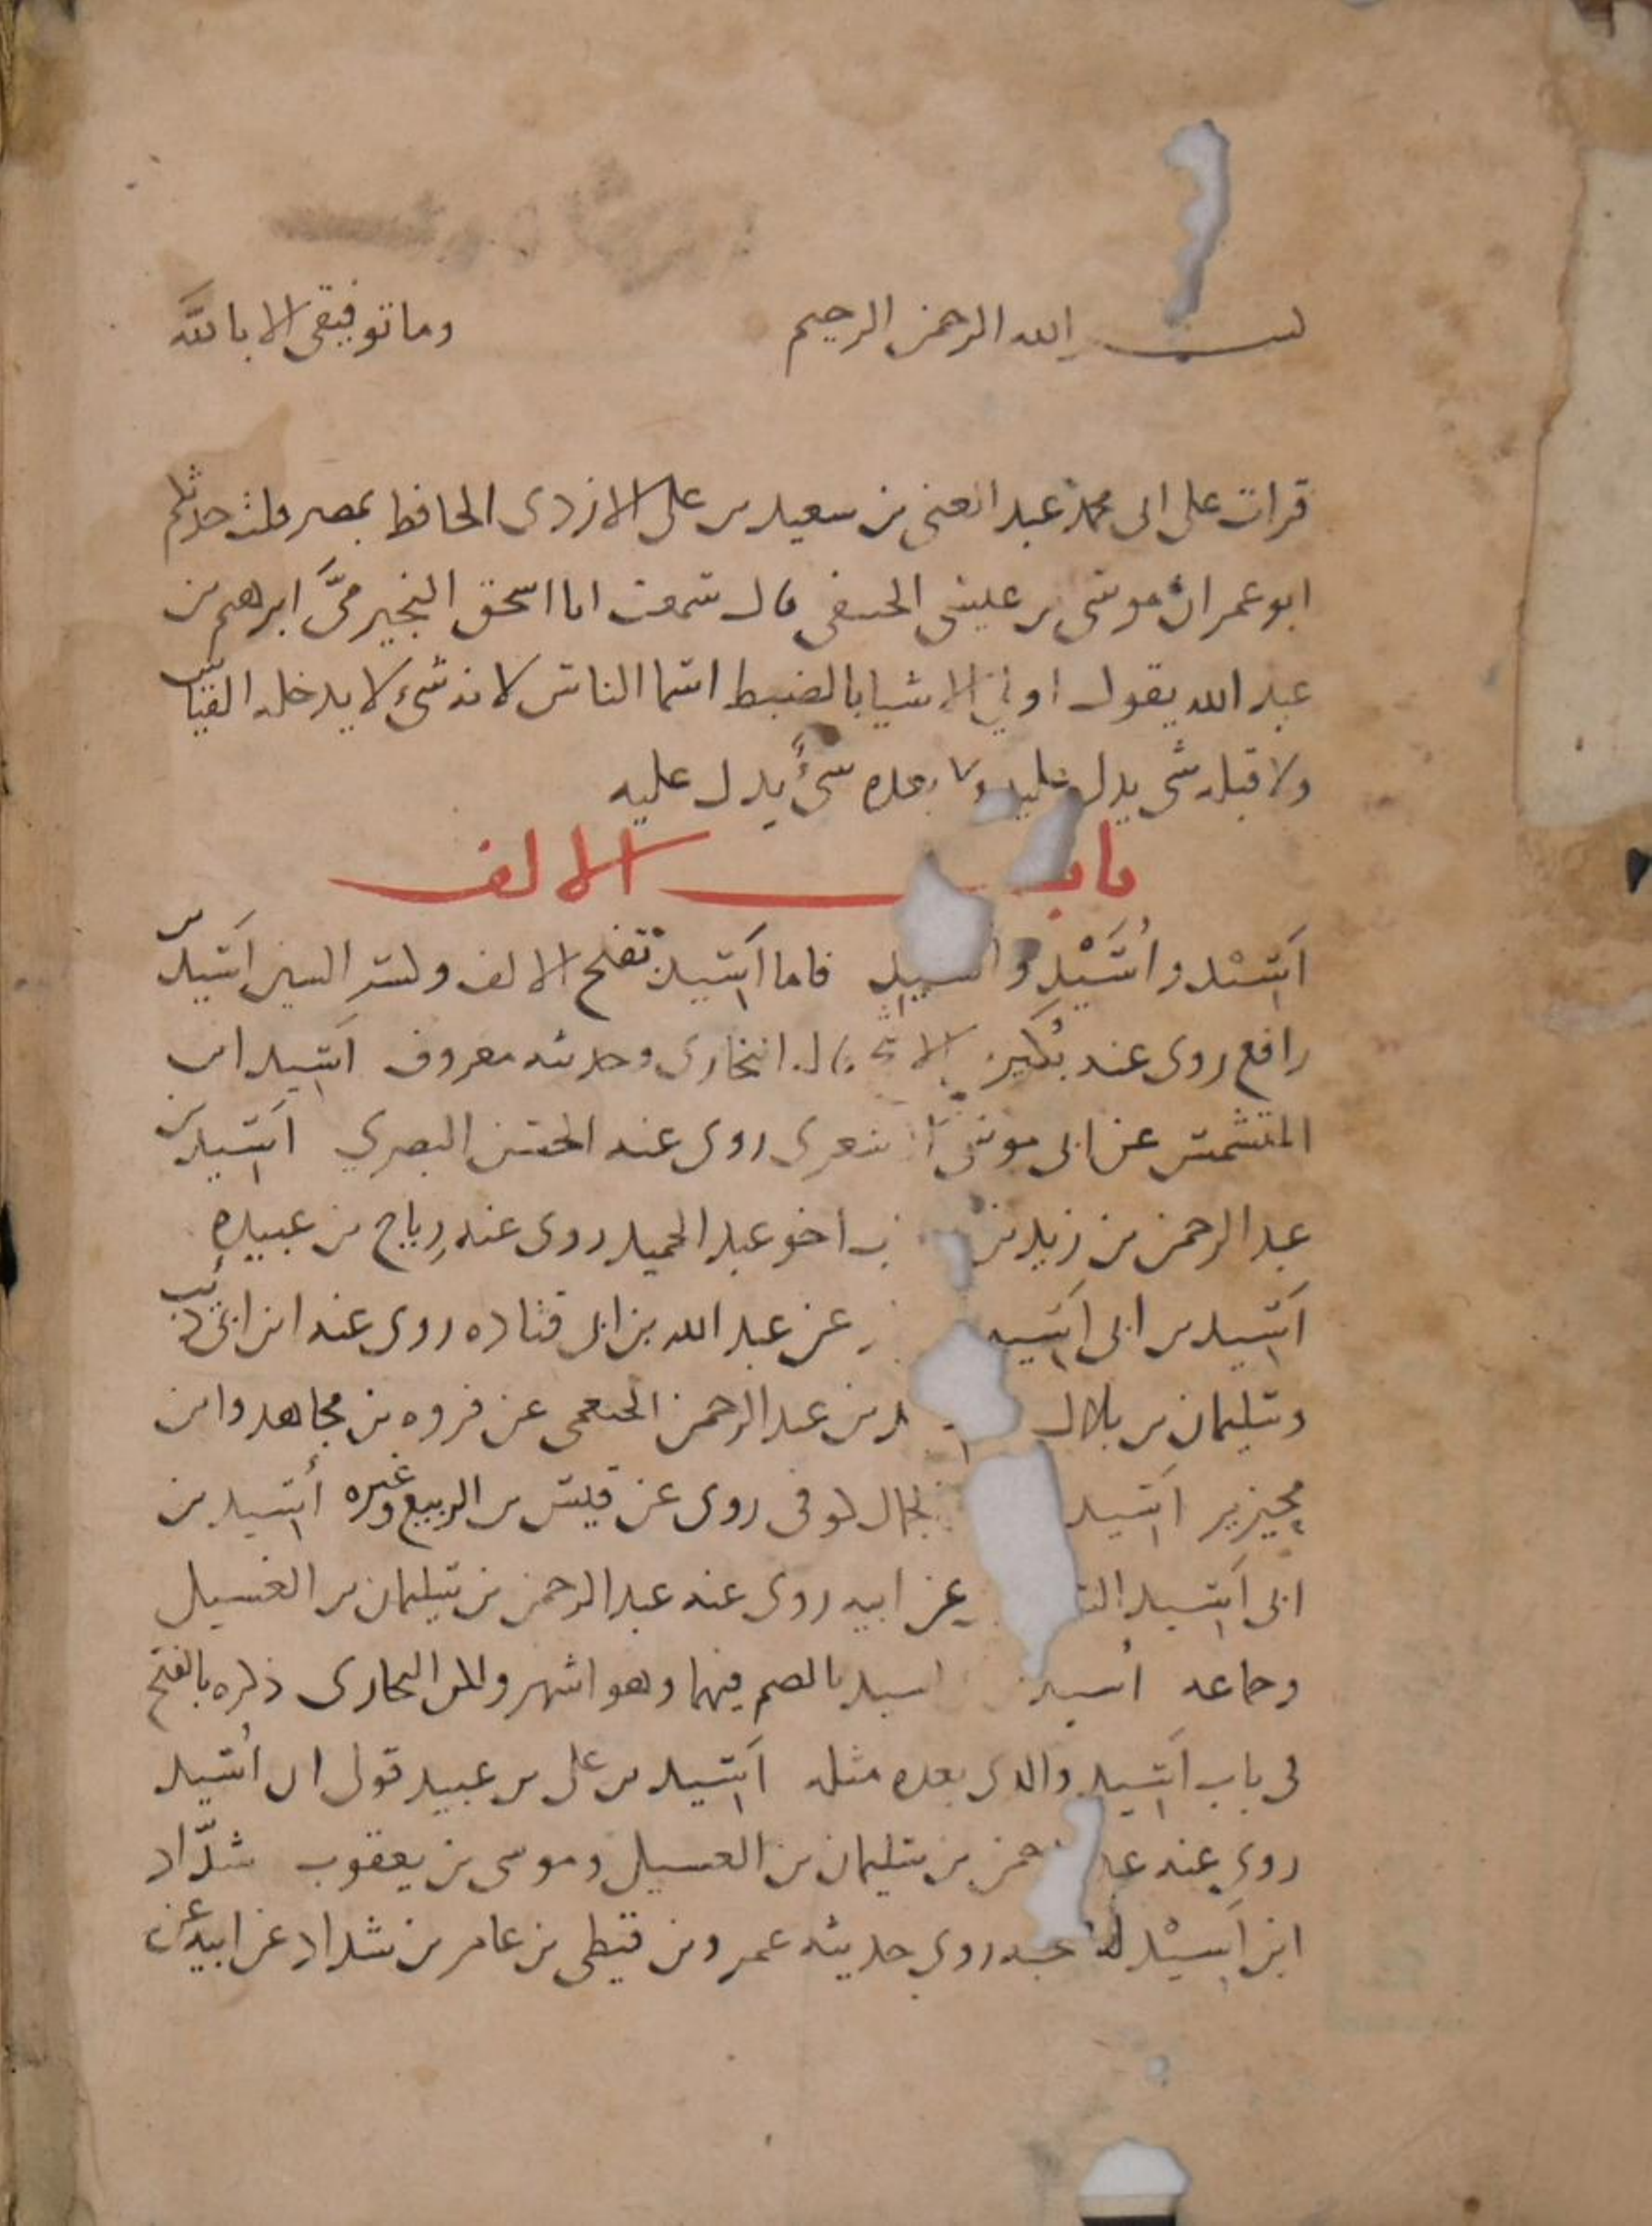 بسم الله الرحمن الرحيم وما توفيقي الا بالله
قرات على ابى محمد عبد الغنى بن سعيد بن على الازدى الحافظ بمصر قلت حدثكم
ابو عمران موسى بن عيسى الحنفى قال سمعت ابا اسحق النجيرمى ابرهيم بن
عبد الله يقول اولى الاشيا بالضبط اسما الناس لانه شىء لا يدخله القياس
ولا قبله شى يدل عليه ولا بعده شىء يدل عليه
باب الالف
اَسِيْد و اُسَيْد و اسيد فاما اَسِيد بفتح الالف وكسر السين اَسيد بن
رافع روى عنه بكير الاشج قال البخارى وحديثه معروف اَسِيد ابن
المتشمس عن ابى موسى الاشعرى روى عنه الحسن البصري اَسِيد بن
عبد الرحمن بن زيد بن اخو عبد الحميد روى عنه رياح بن عبيده
اَسِيد بن ابى اَسِيد عن عبد الله بن ابى قتاده روى عنه ابن ابى ذئب
وسليمان بن بلال بن عبد الرحمن الخثعمى عن فروه بن مجاهد وابن
محيريز اسيد الجمال كوفى روى عن قيس بن الربيع وغيره أسيد بن
ابى اَسِيد عن ابيه روى عنه عبد الرحمن بن سليمان بن الغسيل
وجماعه اُسيد اسيد بالضم فيهما وهو اشهر ولكن البخارى ذكره بالفتح
فى باب اَسِيد والذى بعده مثله اَسِيد بن على بن عبيد مولى ابى اُسيد
روى عنه عبد الرحمن بن سليمان بن الغسيل وموسى بن يعقوب شدّاد
ابن اَسِيْد له صحبه روى حديثه عمرو بن قيظى بن عامر بن شداد عن ابيه عن